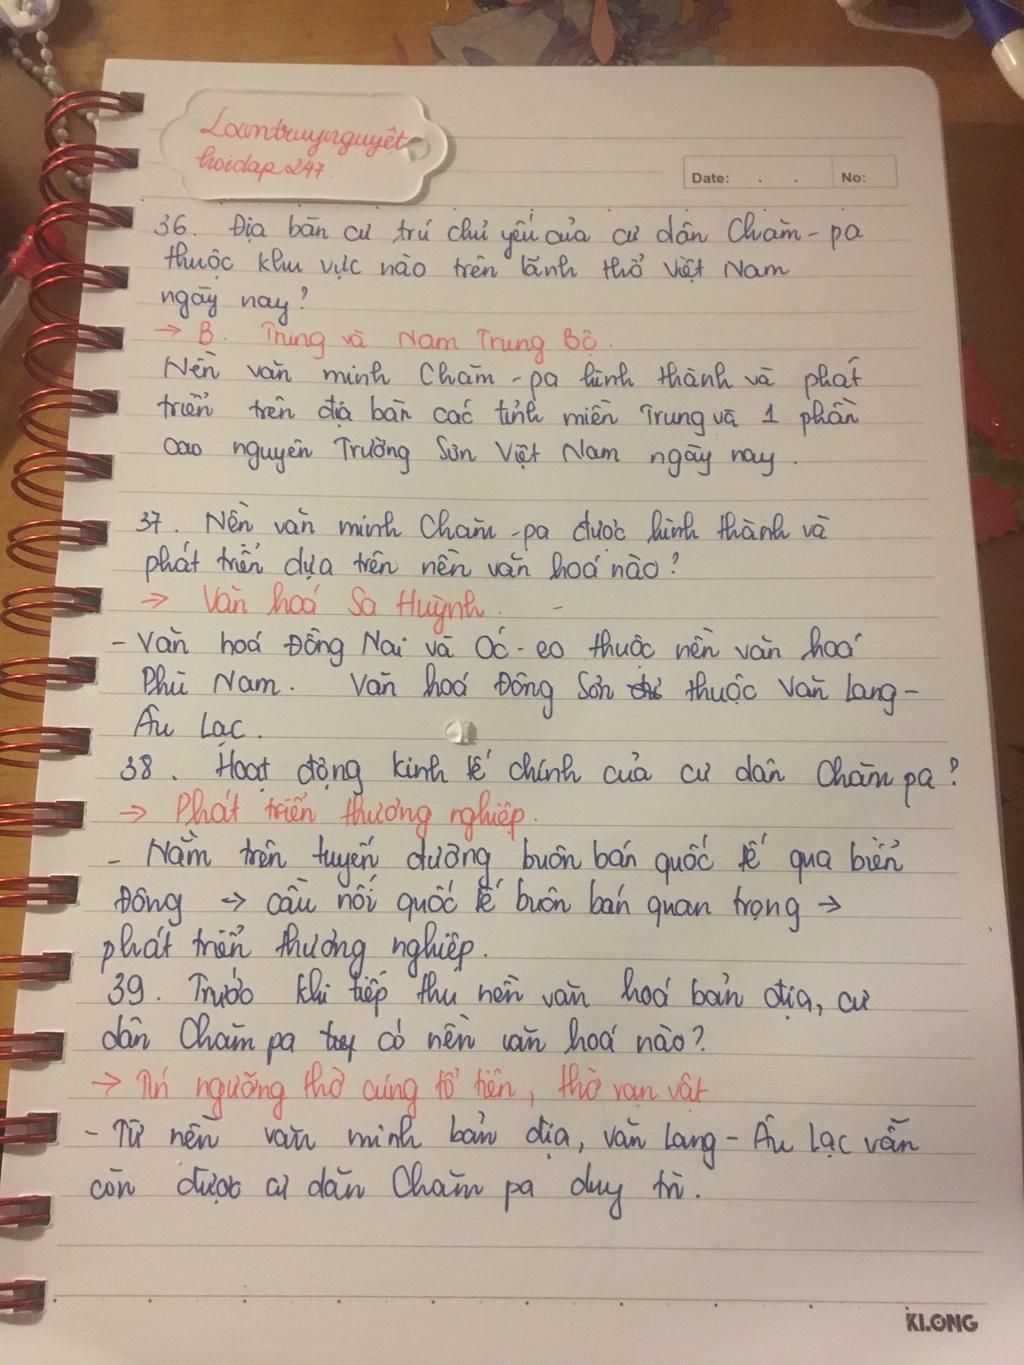 Lamtruynguyệt
hoidap247.
Date: . . No:
36. Địa bàn cư trú chủ yếu của cư dân Chăm-pa
thuộc khu vực nào trên lãnh thổ Việt Nam
ngày nay?
→ B. Trung và Nam Trung Bộ.
Nền văn minh Chăm-pa hình thành và phát
triển trên địa bàn các tỉnh miền Trung và 1 phần
cao nguyên Trường Sơn Việt Nam ngày nay.
37. Nền văn minh Chăm-pa được hình thành và
phát triển dựa trên nền văn hoá nào?
→ Văn hoá Sa Huỳnh.
- Văn hoá Đồng Nai và Óc-eo thuộc nền văn hoá
Phù Nam. Văn hoá Đông Sơn thuộc Văn Lang-
Âu Lạc.
38. Hoạt động kinh tế chính của cư dân Chăm pa?
→ Phát triển thương nghiệp.
- Nằm trên tuyến đường buôn bán quốc tế qua biển
Đông → cầu nối quốc tế buôn bán quan trọng →
phát triển thương nghiệp.
39. Trước khi tiếp thu nền văn hoá bản địa, cư
dân Chăm pa có nền văn hoá nào?
→ Tín ngưỡng thờ cúng tổ tiên, thờ vạn vật
- Từ nền văn minh bản địa, Văn Lang - Âu Lạc vẫn
còn được cư dân Chăm pa duy trì.
KLONG